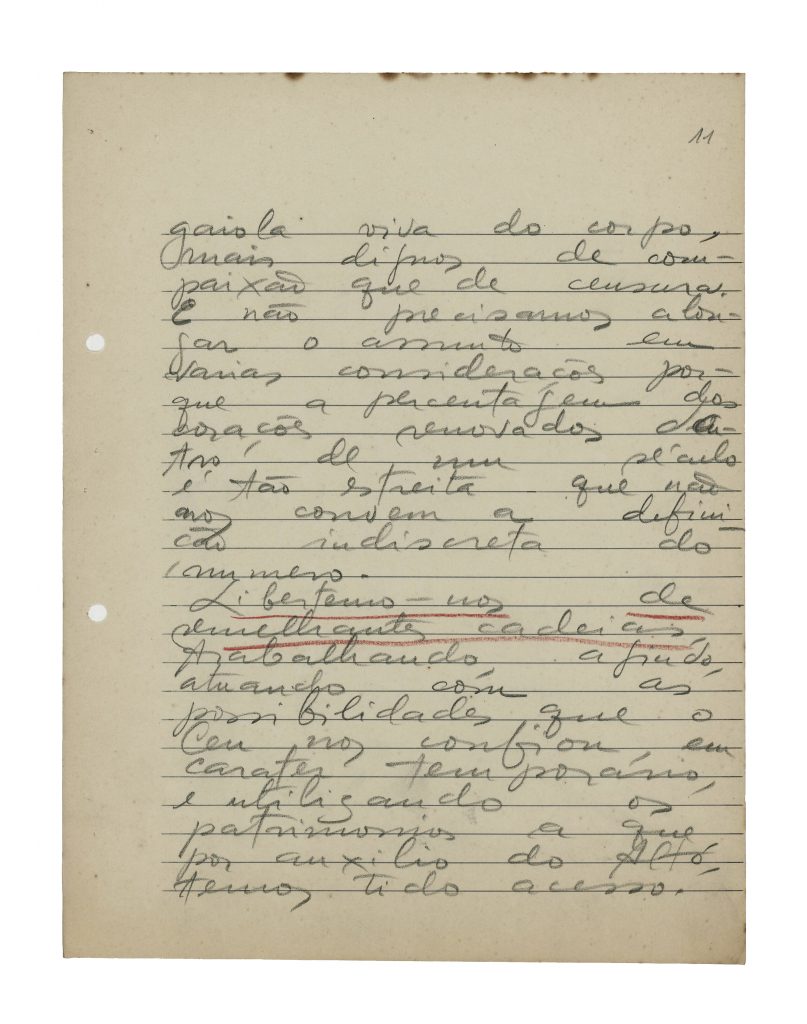 11
gaiola viva do corpo,
mais dignos de com-
paixão que de censura.
E não precisamos alon-
gar o assunto em
varias considerações por-
que a percentagem dos
corações renovados den-
tro de um século
é tão estreita que não
nos convem a defini-
ção indiscreta do
numero.
Libertemo-nos de
semelhantes cadeias,
trabalhando, agindo,
atuando com as
possibilidades que o
Ceu nos confiou, em
carater temporário,
e utilizando os
patrimonios a que
por auxilio do Alto,
temos tido acesso.